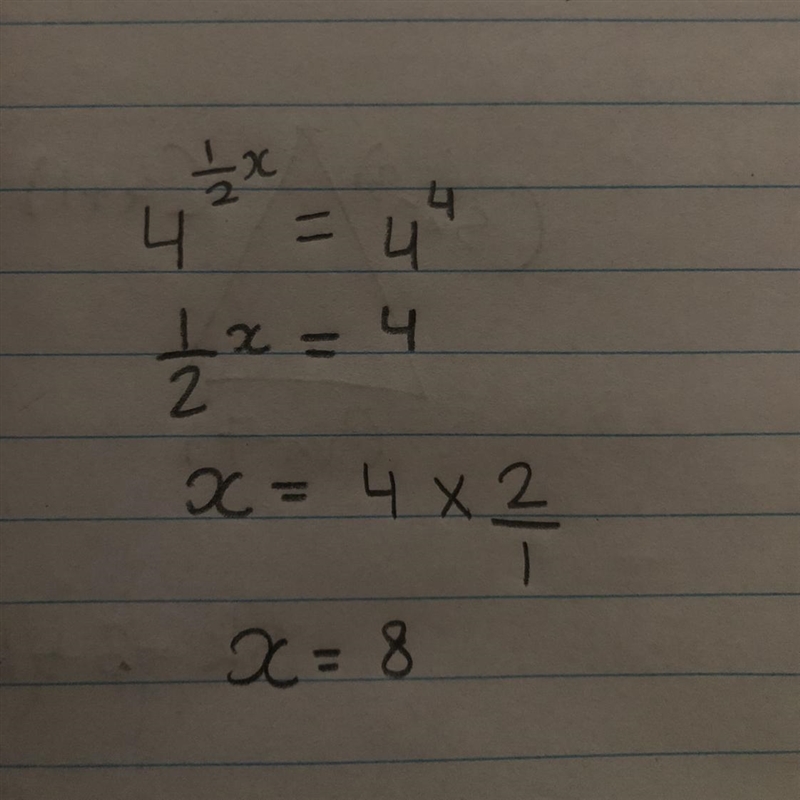 4^{\frac{1}{2}x} = 4^4
\frac{1}{2}x = 4
x = 4 × \frac{2}{1}
x = 8